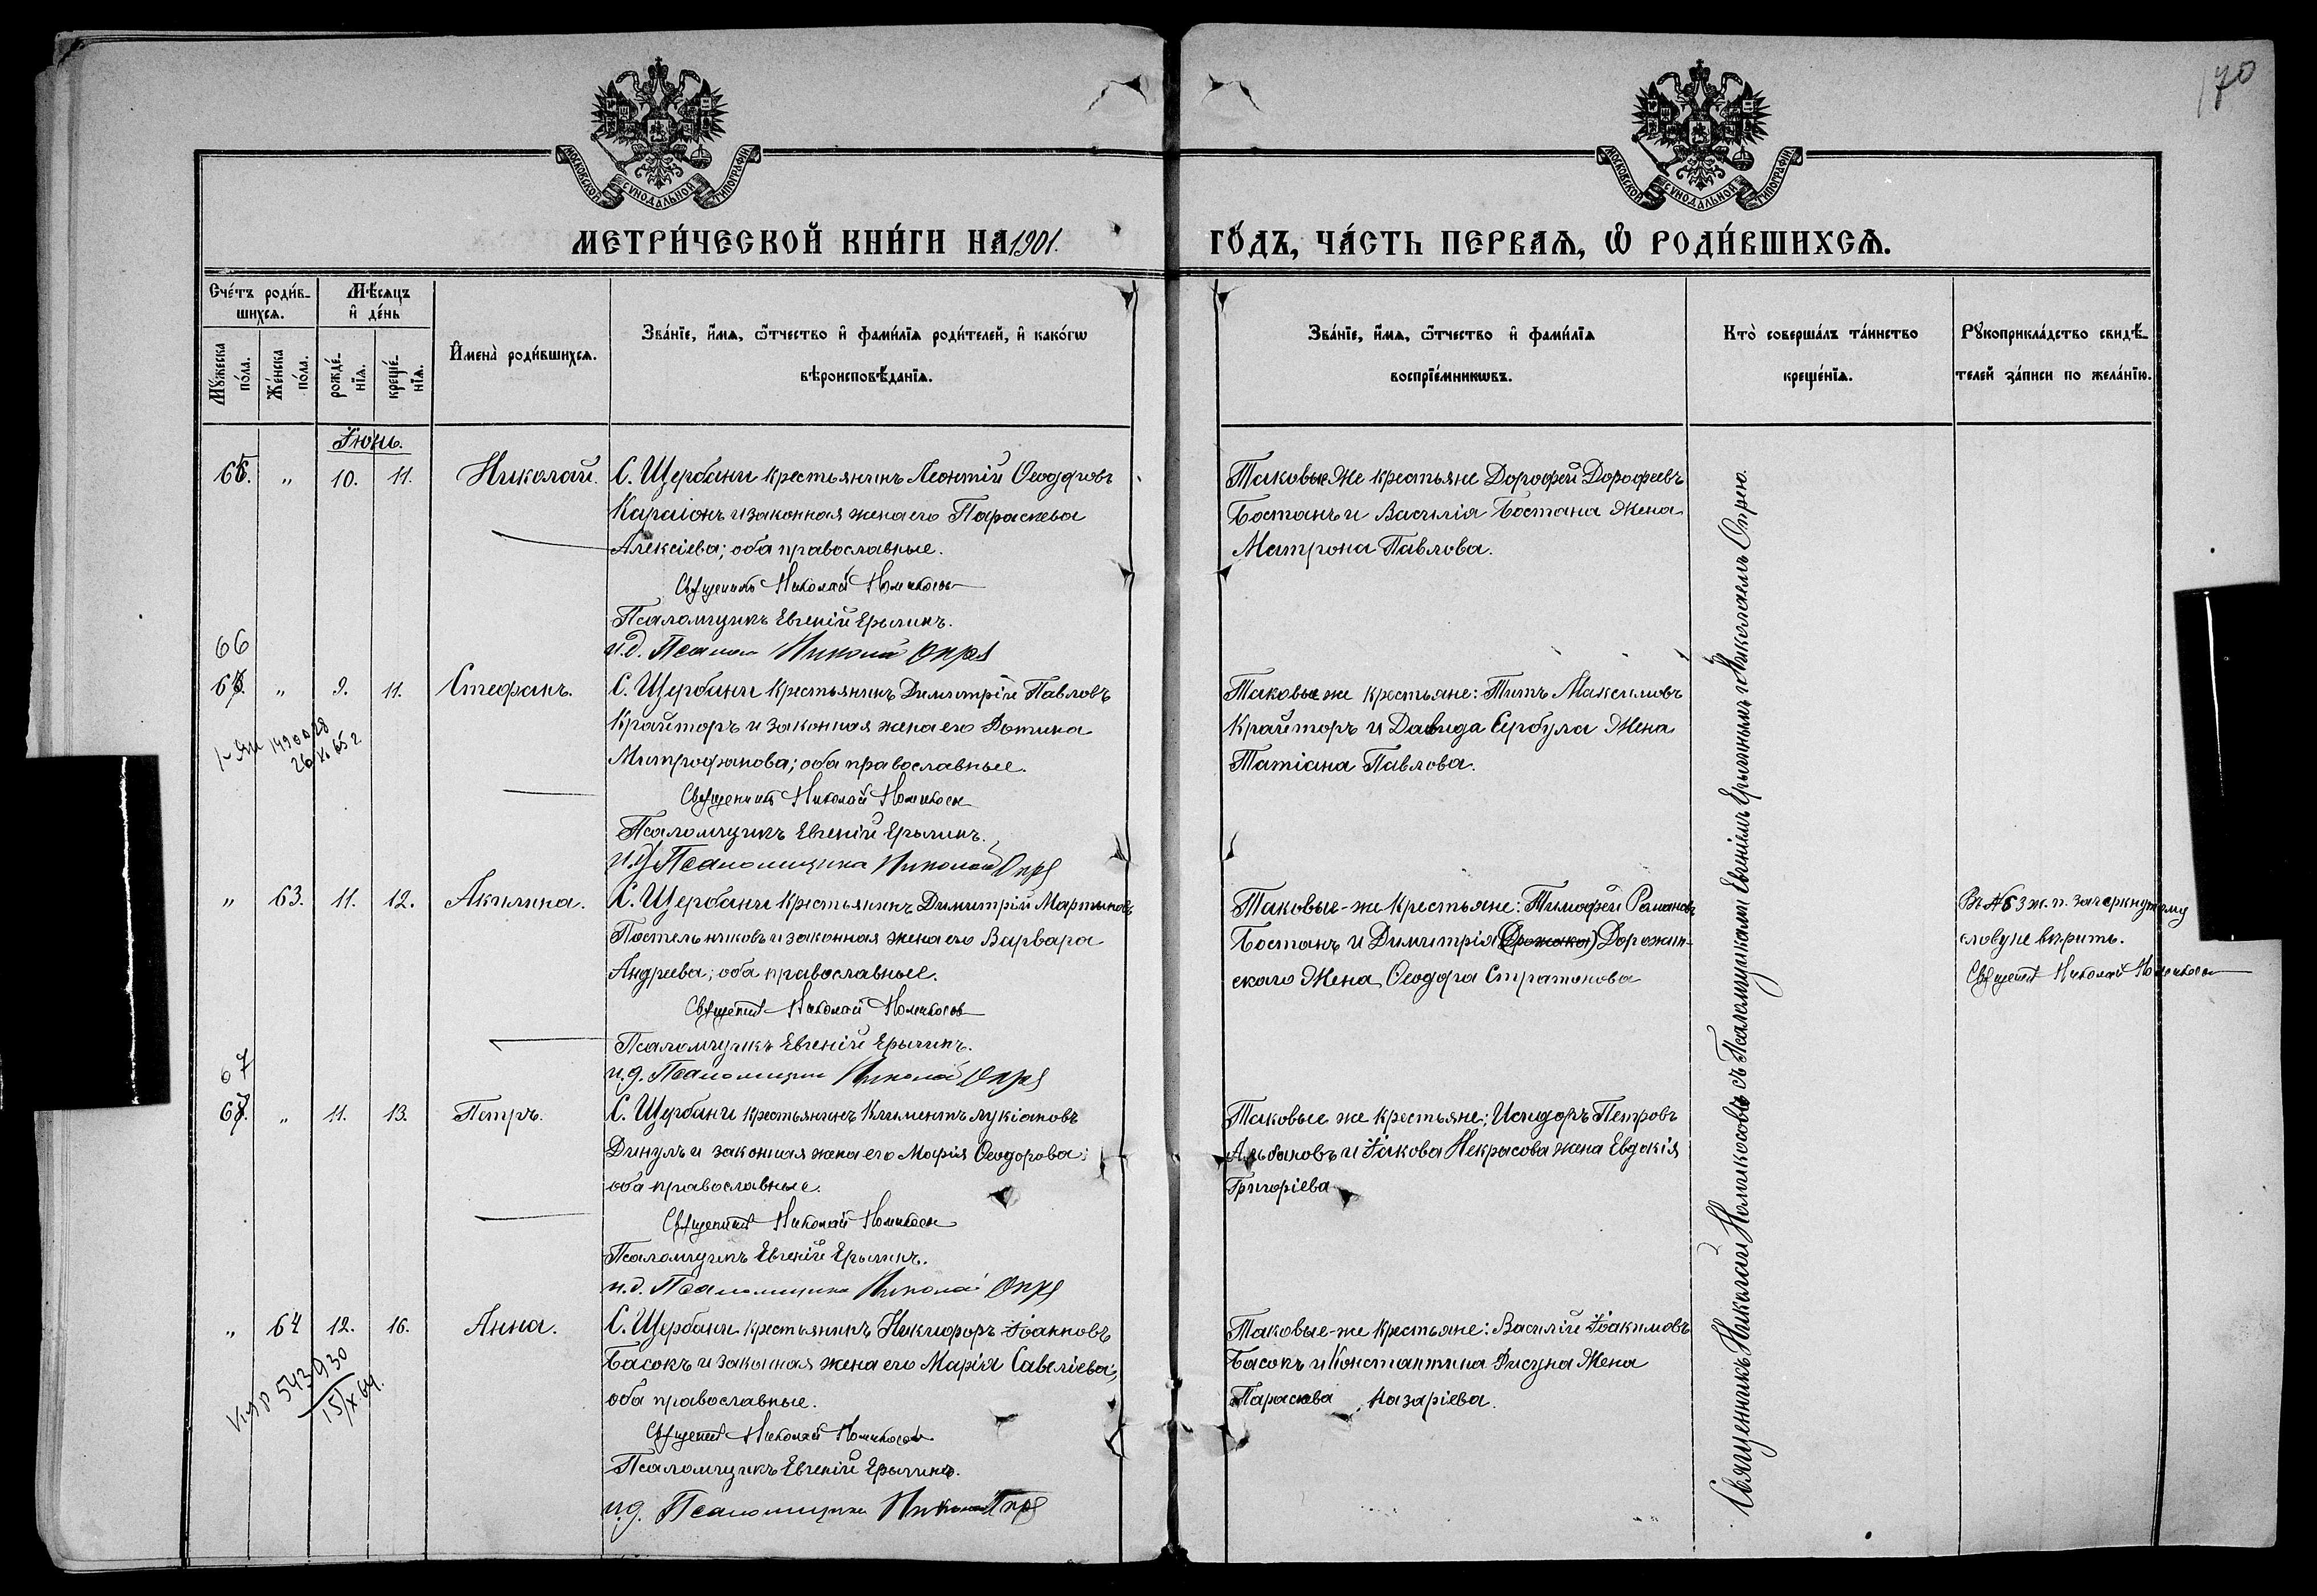 170
МОСКОВСКОЙ СѴНОДАЛЬНОЙ ТИПОГРАФІИ
МОСКОВСКОЙ СѴНОДАЛЬНОЙ ТИПОГРАФІИ
МЕТРИ́ЧЕСКОЙ КНИ́ГИ НА 1901.
ГО́ДЪ, ЧА́СТЬ ПЕРВАѦ, Ѡ РОДИ́ВШИХСѦ.
Сче́тъ роди́в-
шихсѧ.
Мꙋ́жеска по́ла.
Же́нска по́ла.
Мѣ́сѧцъ
и҆ де́нь
рожде́-
нїѧ.
креще́-
нїѧ.
И҆мена̀ роди́вшихсѧ.
Зва́нїе, и҆́мѧ, ѻ҆́тчество и҆ фами́лїѧ роди́телей, и҆ како́гѡ
вѣроисповѣ́данїѧ.
Зва́нїе, и҆́мѧ, ѻ҆́тчество и҆ фами́лїѧ
воспрїе́мникѡвъ.
Кто̀ соверша́лъ та́инство
креще́нїѧ.
Рꙋкоприкла́дство свидѣ́-
телей за́писи по жела́нїю.
Іюнь.
65. " 10. 11. Николай.
С. Щербани крестьянинъ Леонтій Ѳеодоровъ
Караіонъ и законная жена его Параскева
Алексіева; оба православные.
Священникъ Николай Номикосов
Псаломщикъ Евгеній Ерылинъ.
и.д. Псалом Николай Опря
Таковые же крестьяне Дорофей Дорофеевъ
Бостанъ и Василія Бостана жена
Матрона Павлова.
66
" 9. 11. Стефанъ.
26/XI 65 г
С. Щербани крестьянинъ Димитрій Павловъ
Крайторъ и законная жена его Фотина
Митрофанова; оба православные.
Священникъ Николай Номикосов
Псаломщикъ Евгеній Ерылинъ.
и.д. Псаломщика Николай Опря
Таковые же крестьяне: Титъ Максимовъ
Крайторъ и Давида Сербула жена
Татіана Павлова.
" 63. 11. 12. Акилина.
С. Щербани крестьянинъ Димитрій Мартиновъ
Постельниковъ и законная жена его Варвара
Андреева; оба православные.
Священникъ Николай Номикосов
Псаломщикъ Евгеній Ерылинъ.
и.д. Псаломщика Николай Опря
Таковые-же крестьяне: Тимофей Романовъ
Бостанъ и Димитрія Дорожин-
скаго жена Ѳеодора Стратонова
Въ № 63 ж. п. зачеркнутому
слову не вѣрить.
Священникъ Николай Номикосов
67
67. " 11. 13. Петръ.
С. Щербани крестьянинъ Климентъ Лукіановъ
Динулъ и законная жена его Марія Ѳеодорова;
оба православные.
Священникъ Николай Номикосов
Псаломщикъ Евгеній Ерылинъ.
и.д. Псаломщика Николай Опря
Таковые же крестьяне; Исидоръ Петровъ
и Іакова Некрасова жена Евдокія
Григоріева
" 64 12. 16. Анна.
543930
15/X 64.
С. Щербани крестьянинъ Никифоръ Іоанновъ
Басокъ и законная жена его Марія Савеліева;
оба православные.
Священникъ Николай Номикосов
Псаломщикъ Евгеній Ерылинъ.
и.д. Псаломщика Николай Опря
Таковые-же крестьяне: Василій Іоакимовъ
Басокъ и Константина Фисуна жена
Параскева Назаріева.
Священникъ Николай Номикосовъ съ Псаломщиками Евгеніемъ Ерылинымъ и Николаемъ Опрею.